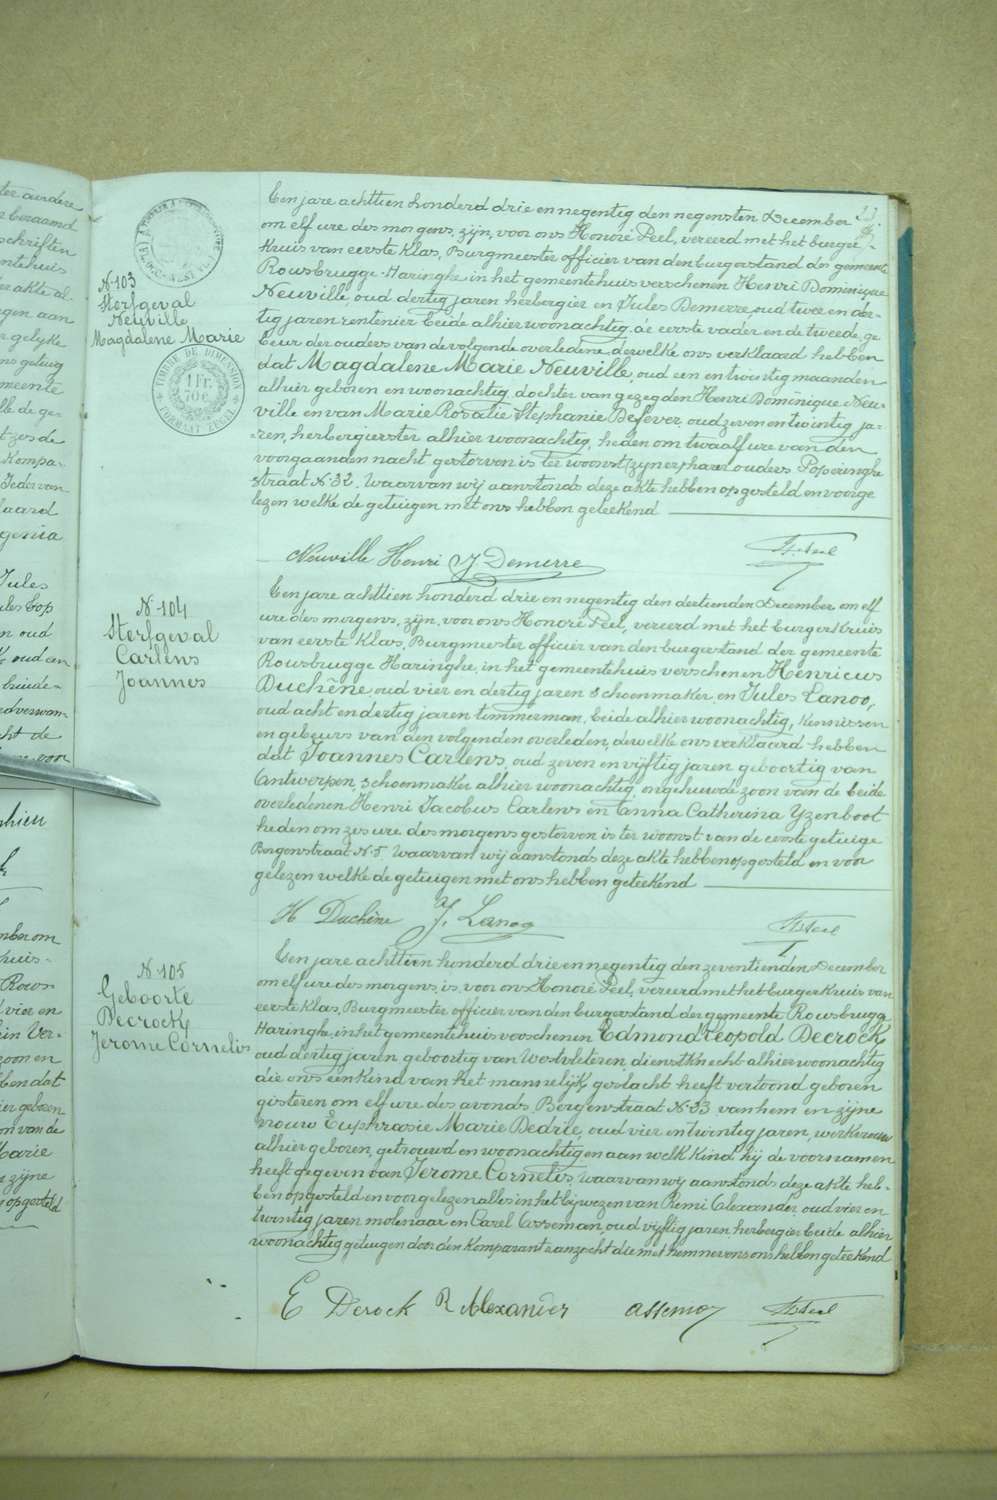 N. 103
Sterfgeval
Neuville
Magdalene Marie
TIMBRE DE DIMENSION
1 Fr.
Een jare achttien honderd drie en negentig den negensten December
om elf ure des morgens, zijn, voor ons Honoré Peel, vereerd met het burger
Kruis van eerste Klas, Burgmeester officier van den burgerstand der gemeente
Rousbrugge-Haringhe, in het gemeentehuis verschenen Henri Dominique
Neuville, oud dertig jaren herbergier en Jules Demerre, oud twee en der-
tig jaren rentenier beide alhier woonachtig, de eerste vader en de tweede, ge
beur der ouders van de volgende overledene, dewelke ons verklaard hebben
dat Magdalene Marie Neuville, oud een en twintig maanden
alhier geboren en woonachtig, dochter van gezegden Henri Dominique Neu-
ville en van Marie Rosalie Stephanie Defever, oud zeven en twintig ja-
ren, herbergierster alhier woonachtig, heden om twaalf ure van den
voorgaanden nacht gestorven is ter woonst zijner harer ouders Poperinghe
straat N. 32. Waarvan wij aanstonds deze akte hebben opgesteld en voorge
lezen welke de getuigen met ons hebben geteekend
Neuville Henri J Demerre H. Peel
N. 104
Sterfgeval
Carlens
Joannes
Een jare achttien honderd drie en negentig den dertienden December om elf
ure des morgens, zijn, voor ons Honoré Peel, vereerd met het burger Kruis
van eerste Klas, Burgmeester officier van den burgerstand der gemeente
Rousbrugge Haringhe, in het gemeentehuis verschenen Henricus
Duchêne, oud vier en dertig jaren schoenmaker en Jules Lanoo,
oud acht en dertig jaren timmerman, beide alhier woonachtig, kennissen
en gebeurs van den volgenden overleden, dewelke ons verklaard hebben
dat Joannes Carlens, oud zeven en vijftig jaren geboortig van
Antwerpen, schoenmaker alhier woonachtig, ongehuwde zoon van de beide
overledenen Henri Jacobus Carlens en Anna Catherina Yzenboot
heden om zes ure des morgens gestorven is ter woonst van de eerste getuige
Bergenstraat N. 5. Waarvan wij aanstonds deze akte hebben opgesteld en voor
gelezen welke de getuigen met ons hebben geteekend
H Duchêne J. Lanoo H. Peel
N. 105
Geboorte
Decrock
Jerome Cornelis
Een jare achttien honderd drie en negentig den zeventienden December
om elf ure des morgens, is, voor ons Honoré Peel, vereerd met het burger Kruis van
eerste Klas, Burgmeester officier van den burgerstand der gemeente Rousbrugg
Haringhe, in het gemeentehuis verschenen Edmond Leopold Decrock
oud dertig jaren geboortig van Westvleteren, dienstknecht alhier woonachtig
die ons een kind van het mannelijk geslacht heeft vertoond geboren
gisteren om elf ure des avonds, Bergenstraat N. 33 van hem en zijne
vrouw Euphrasie Marie Dedrie, oud vier en twintig jaren, werkvrouw
alhier geboren, getrouwd en woonachtig en aan welk kind hij de voornamen
heeft gegeven van Jerome Cornelis, waarvan wij aanstonds deze akte heb-
ben opgesteld en voorgelezen alles in het bijwezen van Remi Alexander, oud vier en
twintig jaren molenaar en Carel Asseman, oud vijftig jaren herbergier beide alhier
woonachtig getuigen door den komparant aanzocht die met hem nevens ons hebben geteekend
E Decrock R Alexander H. Peel